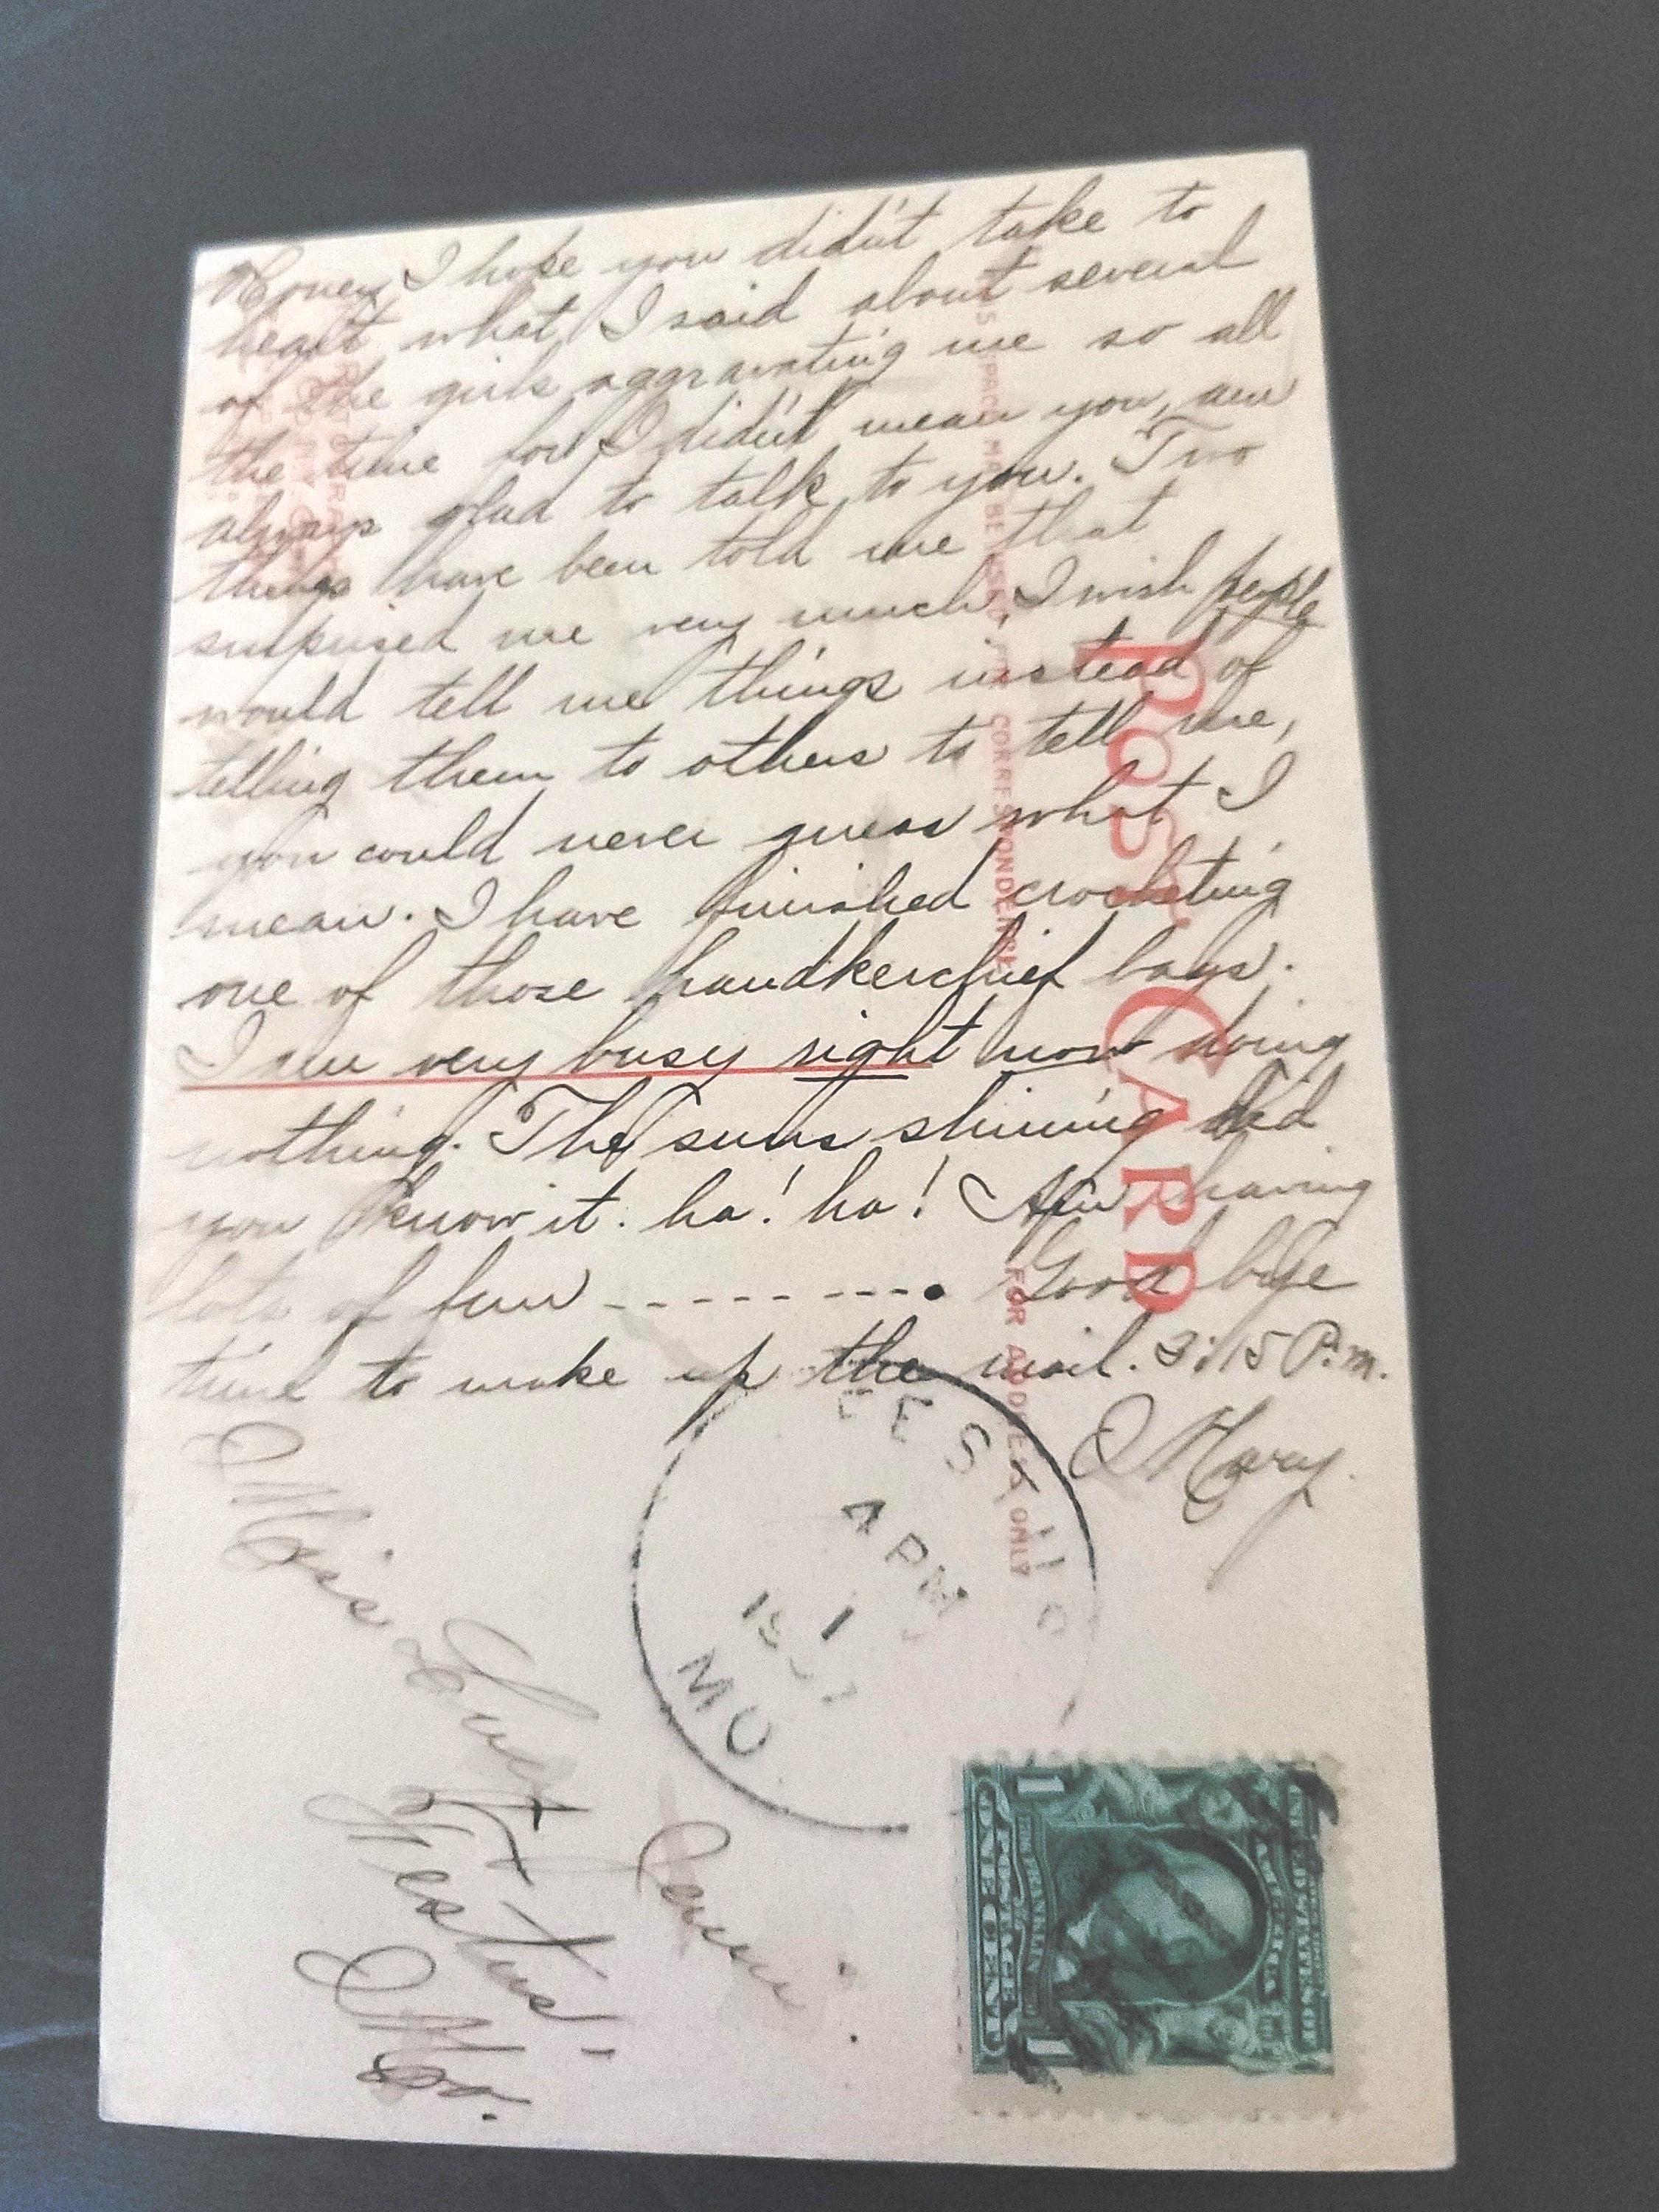 Honey, I hope you didn't take to
heart what I said about several
of the girls aggravating me so all
the time for I didn't mean you, am
always glad to talk to you. Two
things have been told me that
surprised me very much, I wish people
would tell me things instead of
telling them to others to tell me,
you could never guess what I
mean. I have finished crocheting
one of those handkerchief bags.
I am very busy right now doing
nothing. The suns shining did
you know it. ha! ha! Am having
lots of fun - - - - - - - - - . Good bye
time to make up the mail. 3:15 P.m.
Mary.
Miss
Festus,
Mo.
POST CARD
THIS SPACE MAY BE USED FOR CORRESPONDENCE
FOR ADDRESS ONLY
4 PM
1
MO
UNITED STATES OF AMERICA
FRANKLIN
POSTAGE
1 ONE CENT 1